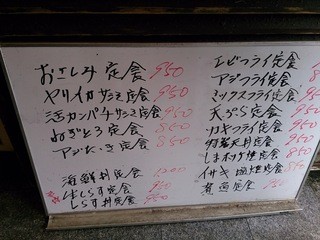 おさしみ定食 950
ヤリイカサシミ定食 950
活カンパチサシミ定食 950
ねぎとろ定食 850
アジたたき定食 850
海鮮丼定食 1200
生しらす定食 950
しらす丼定食 850
エビフライ定食
アジフライ定食
ミックスフライ定食
天ぷら定食
カキフライ定食
天丼定食
しまホッケ焼定食
イサキ塩焼定食
煮魚定食